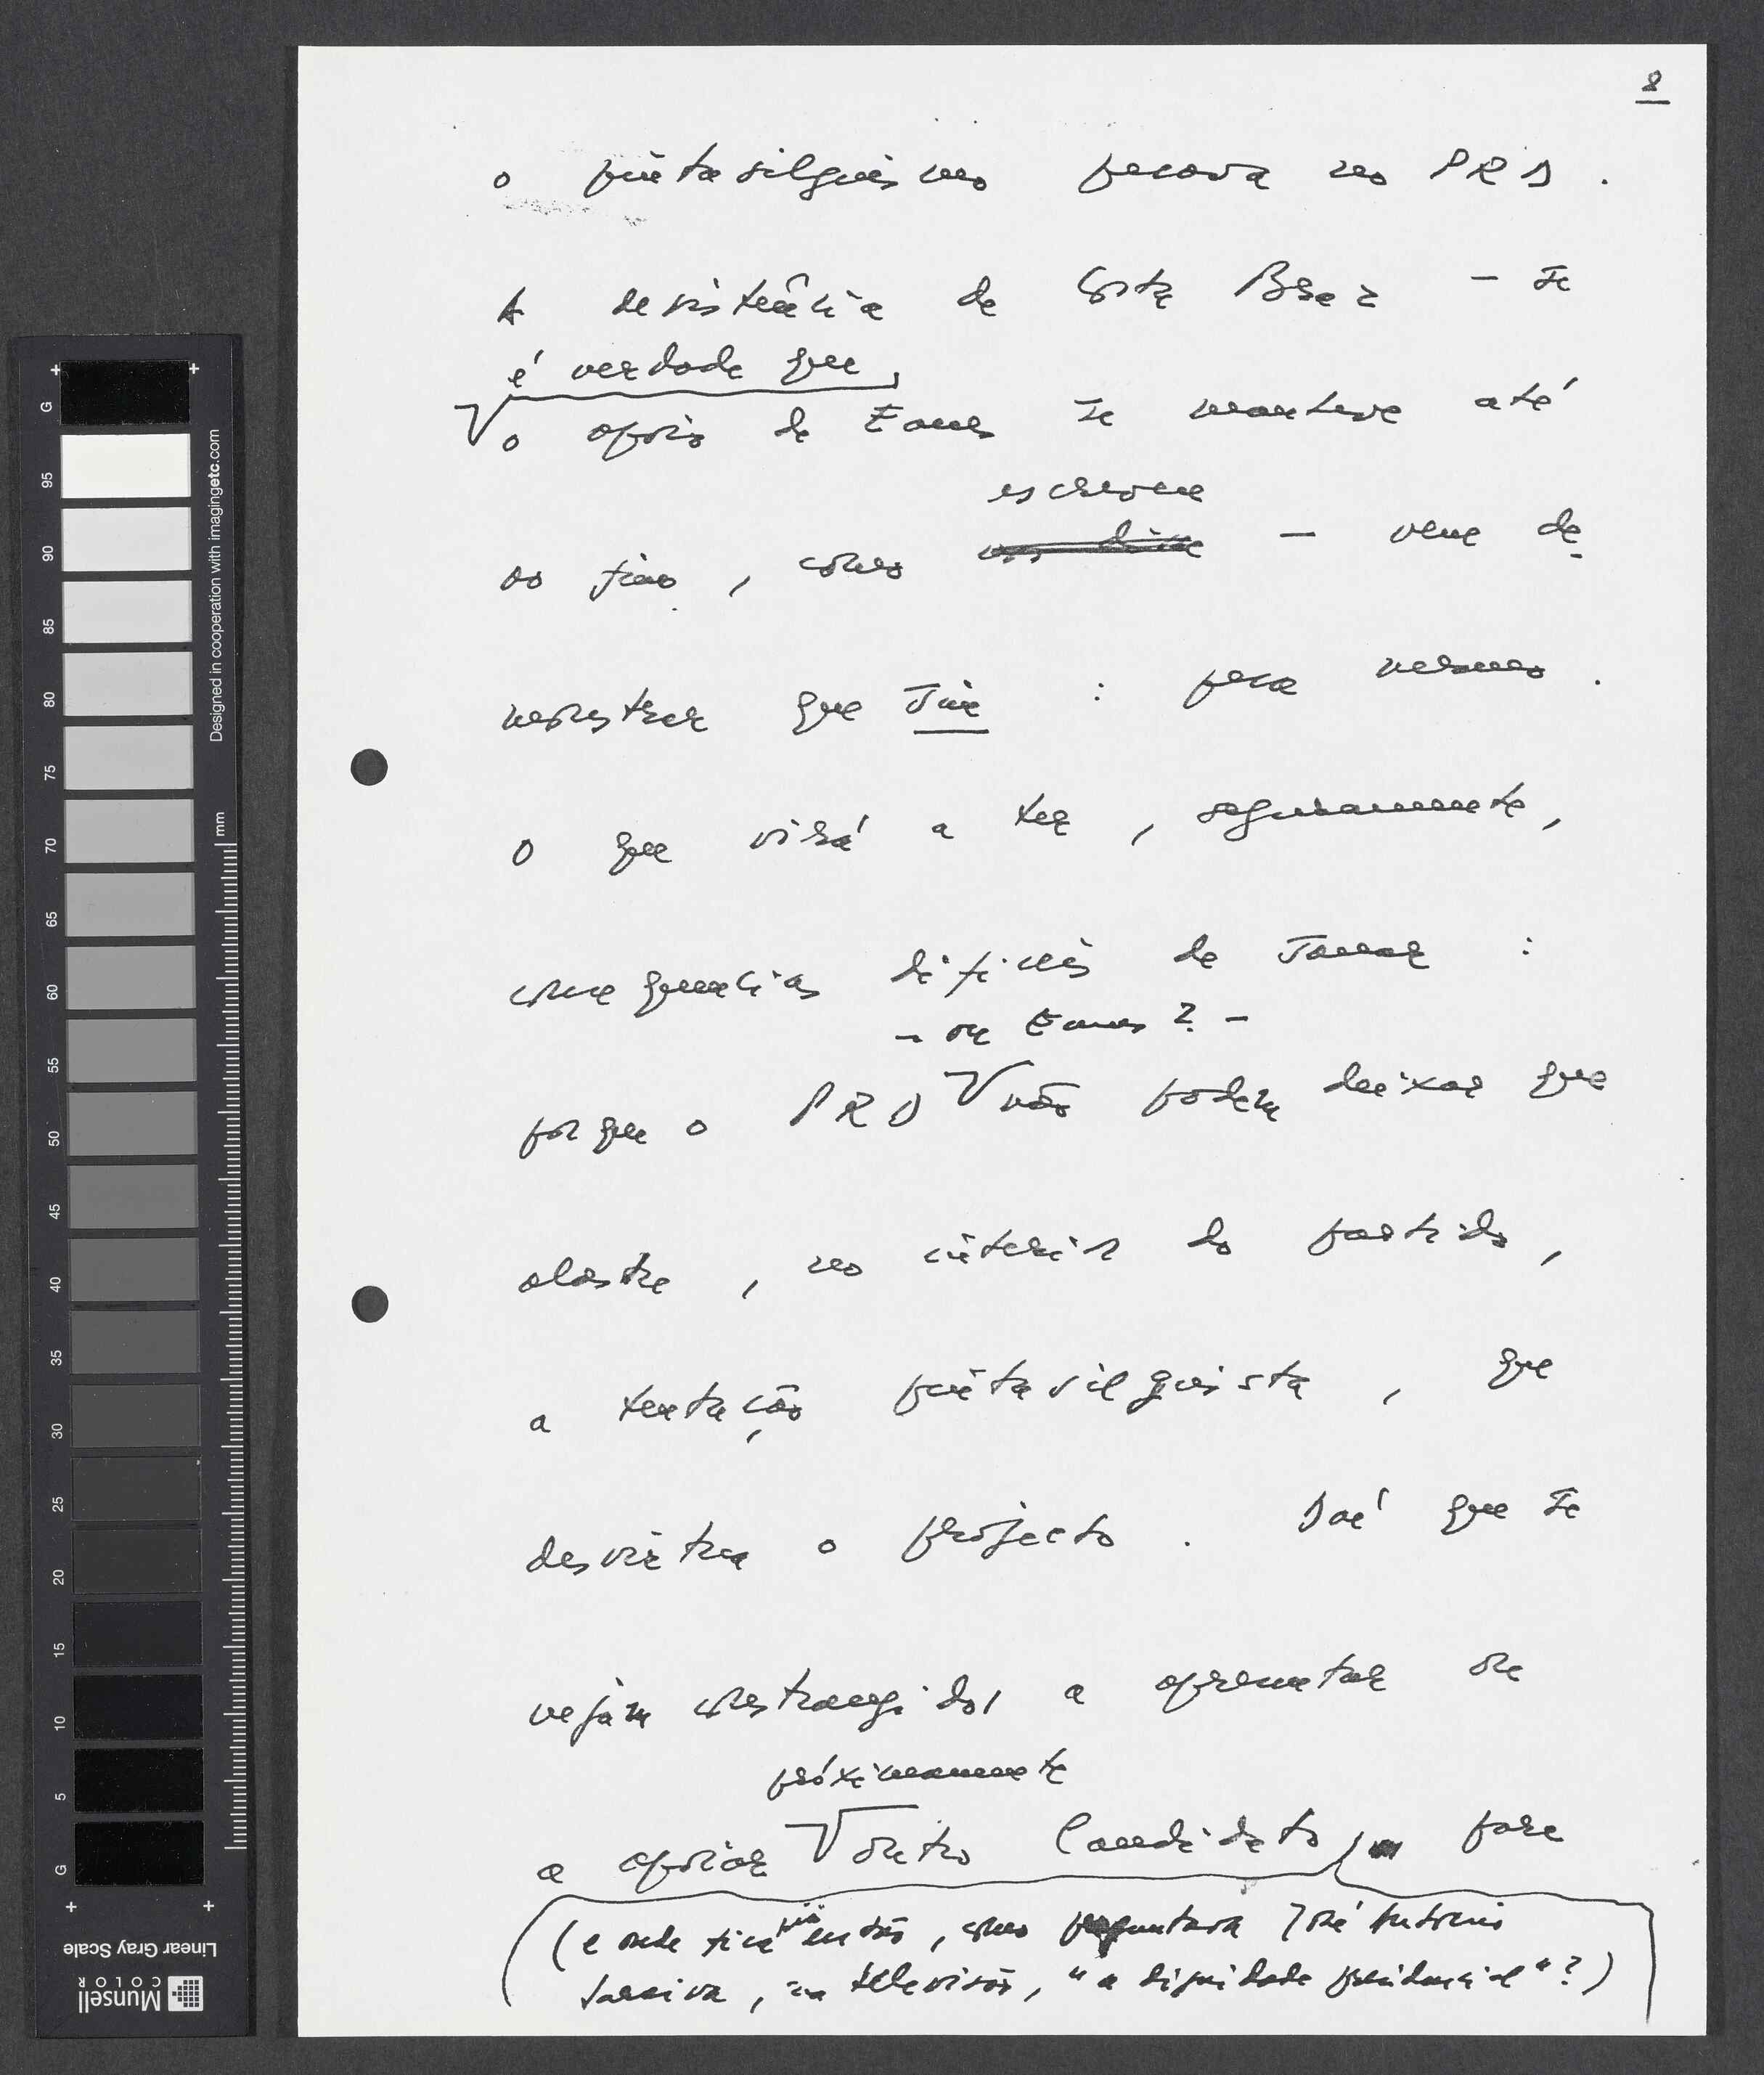 8
o pintasilguismo pesava no PRD.
A desistência de Costa Braz – se
é verdade que
o apoio de Eanes se manteve até
escrevem
ao fim, como – vem de
monstrar que sim : pesa mesmo.
O que virá a ter, seguramente,
consequências difíceis de sanar :
– ou Eanes? –
porque o PRD não podem deixar que
alastre, no interior do partido,
a tentação pintasilguista, que
desvirtua o projecto. Daí que se
vejam constrangidos a apresentar ou
próximamente
a apoiar outro Candidato, para
(e onde fica então, como perguntava José António
Saraiva, na televisão, "a dignidade presidencial"?)
G
95
90
85
80
75
70
65
60
55
50
45
40
35
30
25
20
15
10
5
G
mm
Designed in cooperation with imagingetc.com
Linear Gray Scale
Munsell
COLOR